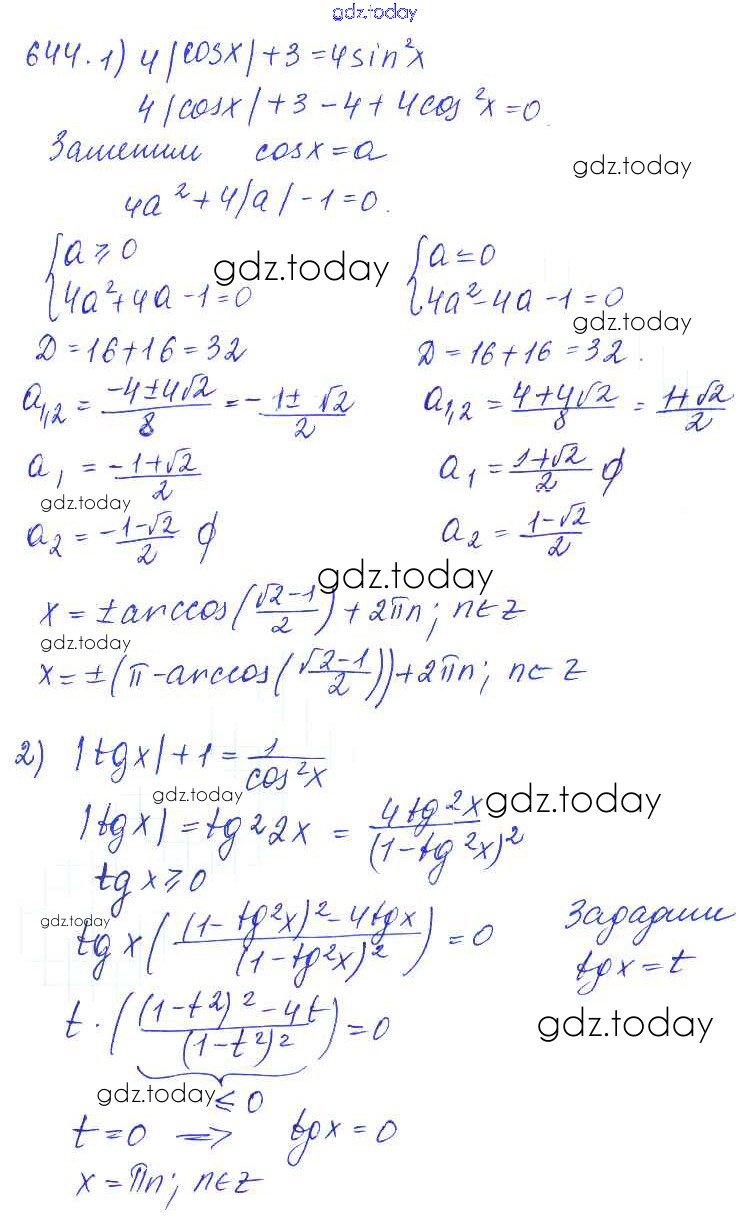 gdz.today
644. 1) 4|cosx|+3=4sin²x
4|cosx|+3-4+4cos²x=0.
Заменим cosx=a
gdz.today
4a²+4|a|-1=0.
{a⩾0 {a≤0
gdz.today
{4a²+4a-1=0 {4a²-4a-1=0
gdz.today
D=16+16=32 D=16+16=32.
a₁,₂ = (-4±4√2)/8 = -(1±√2)/2 a₁,₂ = (4+4√2)/8 = (1+√2)/2
a₁ = (-1+√2)/2 a₁ = (1+√2)/2 ϕ
gdz.today
a₂ = (-1-√2)/2 ϕ a₂ = (1-√2)/2
gdz.today
x = ±arccos((√2-1)/2)+2πn; n∈z
gdz.today
x = ±(π-arccos((√2-1)/2))+2πn; n∈z
2) |tgx|+1 = 1/cos²x
gdz.today
gdz.today
|tgx| = tg²2x = 4tg²x/(1-tg²x)²
tgx⩾0
gdz.today
tgx(((1-tg²x)²-4tgx)/(1-tg²x)²)=0 Зададим
tgx=t
t·(((1-t2)²-4t)/(1-t²)²)=0
gdz.today
gdz.today
≤0
t=0 => tgx=0
x=πn; n∈z